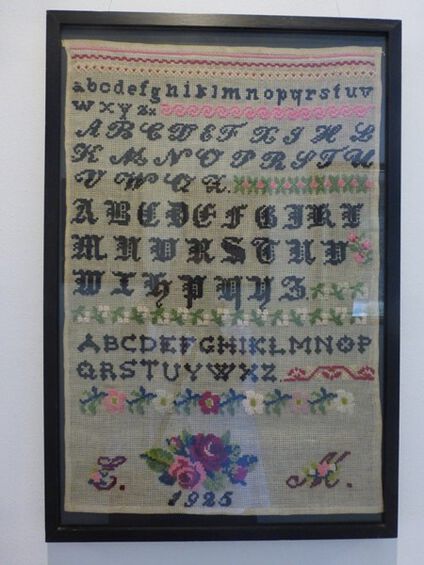 abcdefghiklmnopqrstuv
wxyz
A B C D E F
K M N O P R S T U
V W
A B C D E F G I K L
M N R S T U V
W
ABCDEFGHIKLMNOP
QRSTUVWXZ.
E. M.
1925